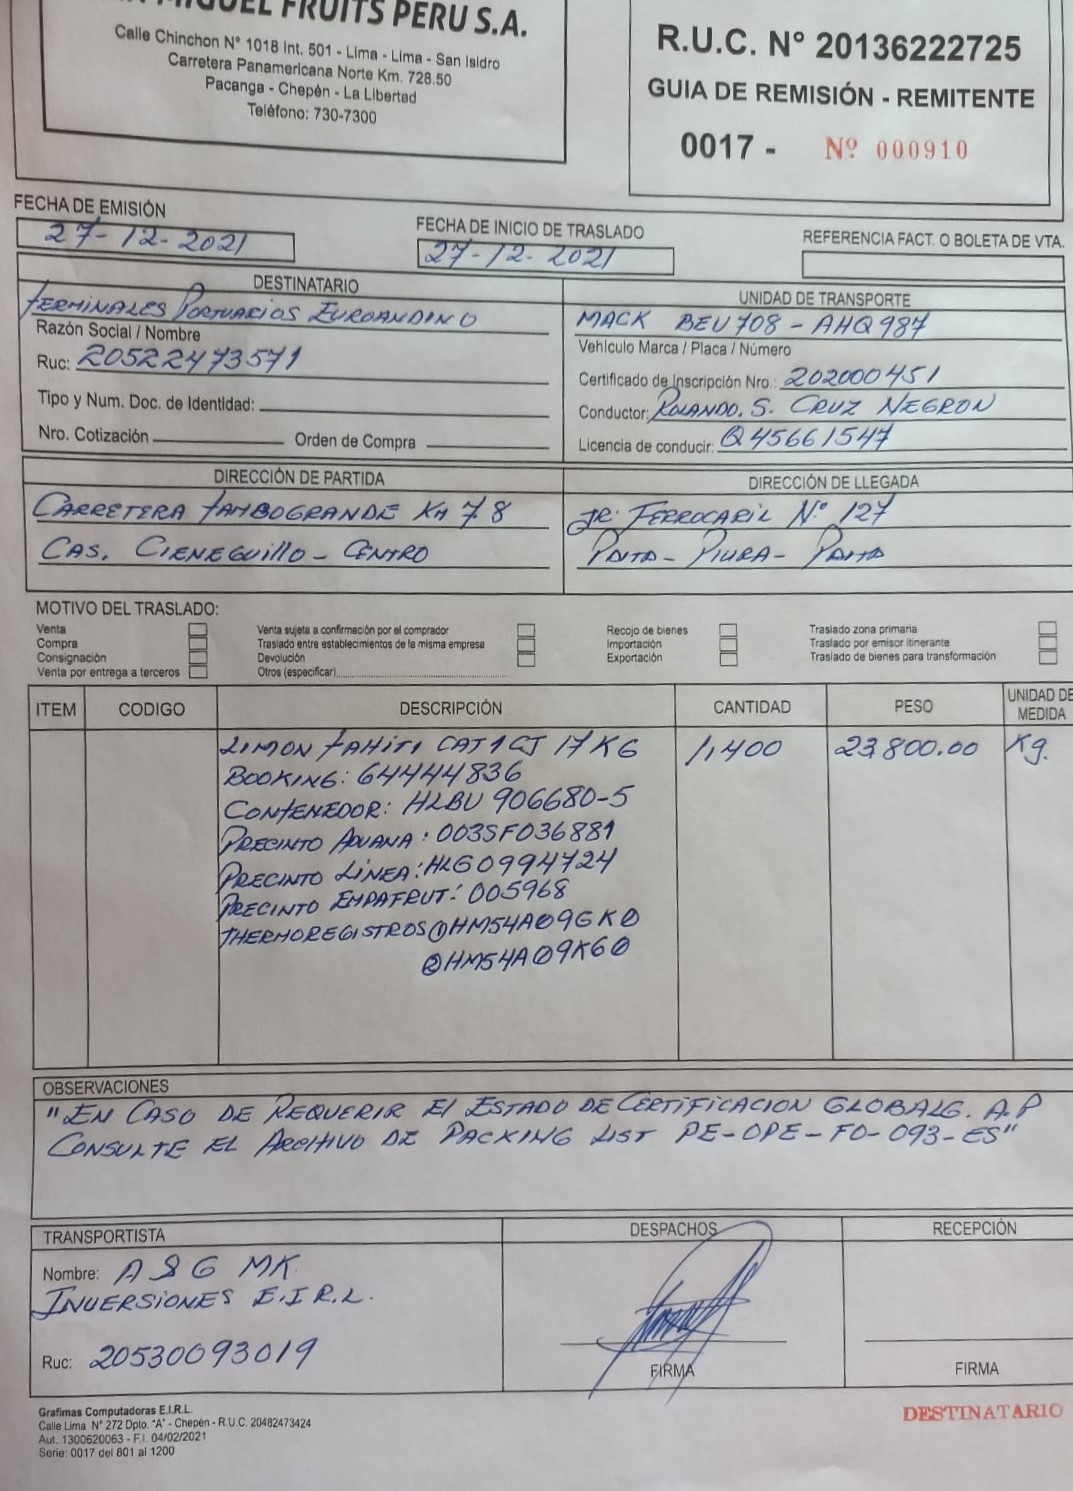 MIGUEL FRUITS PERU S.A.
Calle Chinchon N° 1018 Int. 501 - Lima - Lima - San Isidro
Carretera Panamericana Norte Km. 728.50
Pacanga - Chepén - La Libertad
Teléfono: 730-7300
R.U.C. N° 20136222725
GUIA DE REMISIÓN - REMITENTE
0017 - Nº 000910
FECHA DE EMISIÓN
27-12-2021
FECHA DE INICIO DE TRASLADO
27-12-2021
REFERENCIA FACT. O BOLETA DE VTA.
DESTINATARIO
TERMINALES PORTUARIOS EUROANDINO
Razón Social / Nombre
Ruc: 20522473571
Tipo y Num. Doc. de Identidad:
Nro. Cotización Orden de Compra
UNIDAD DE TRANSPORTE
MACK BEU708-AHQ987
Vehículo Marca / Placa / Número
Certificado de Inscripción Nro.: 202000451
Conductor: ROLANDO. S. CRUZ NEGRON
Licencia de conducir: Q45661547
DIRECCIÓN DE PARTIDA
CARRETERA TAMBOGRANDE KM 7.8
CAS. CIENEGUILLO - CENTRO
DIRECCIÓN DE LLEGADA
JR. FERROCARIL N° 127
PAITA - PIURA - PAITA
MOTIVO DEL TRASLADO:
Venta
Compra
Consignación
Venta por entrega a terceros
Venta sujeta a confirmación por el comprador
Traslado entre establecimientos de la misma empresa
Devolución
Otros (especificar)
Recojo de bienes
Importación
Exportación
Traslado zona primaria
Traslado por emisor itinerante
Traslado de bienes para transformación
ITEM CODIGO DESCRIPCIÓN CANTIDAD PESO UNIDAD DE MEDIDA
LIMON TAHITI CAT1CJ 17KG 1,400 23,800.00 Kg.
BOOKING: 64444836
CONTENEDOR: HLBU 906680-5
PRECINTO ADUANA: 003SF036881
PRECINTO LÍNEA: HLG0994724
PRECINTO EMPAFRUT: 005968
THERMOREGISTROS ① HM54A09GK0
② HM54A09K60
OBSERVACIONES
"EN CASO DE REQUERIR El ESTADO DE CERTIFICACION GLOBALG. A.P
CONSULTE EL ARCHIVO DE PACKING LIST PE-OPE-FO-093-ES"
TRANSPORTISTA
Nombre: A & G MK.
INVERSIONES E.I R.L.
Ruc: 20530093019
DESPACHOS
FIRMA
RECEPCIÓN
FIRMA
Grafimas Computadoras E.I.R.L.
Calle Lima N° 272 Dpto. "A" - Chepén - R.U.C. 20482473424
Aut. 1300620063 - F.I. 04/02/2021
Serie: 0017 del 801 al 1200
DESTINATARIO